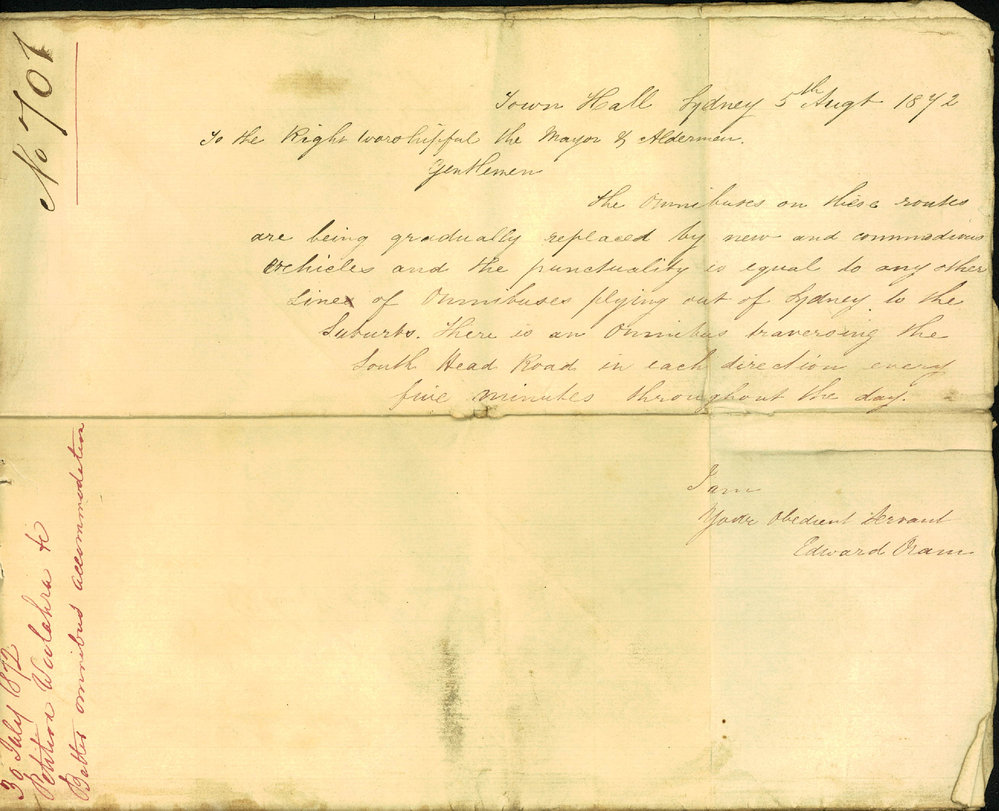 No 701
Town Hall Sydney 5th Augt 1872
To the Right worshipful the Mayor & Aldermen.
Gentlemen
The Omnibuses on these routes
are being gradually replaced by new and commodious
vehicles and the punctuality is equal to any other
Line of Omnibuses plying out of Sydney to the
Suburbs. There is an Omnibus traversing the
South Head Road in each direction every
five minutes throughout the day.
I am
Your Obedient Servant
Edward Oram
30 July 1872
Petition Woolahra &c
Better omnibus accommodation